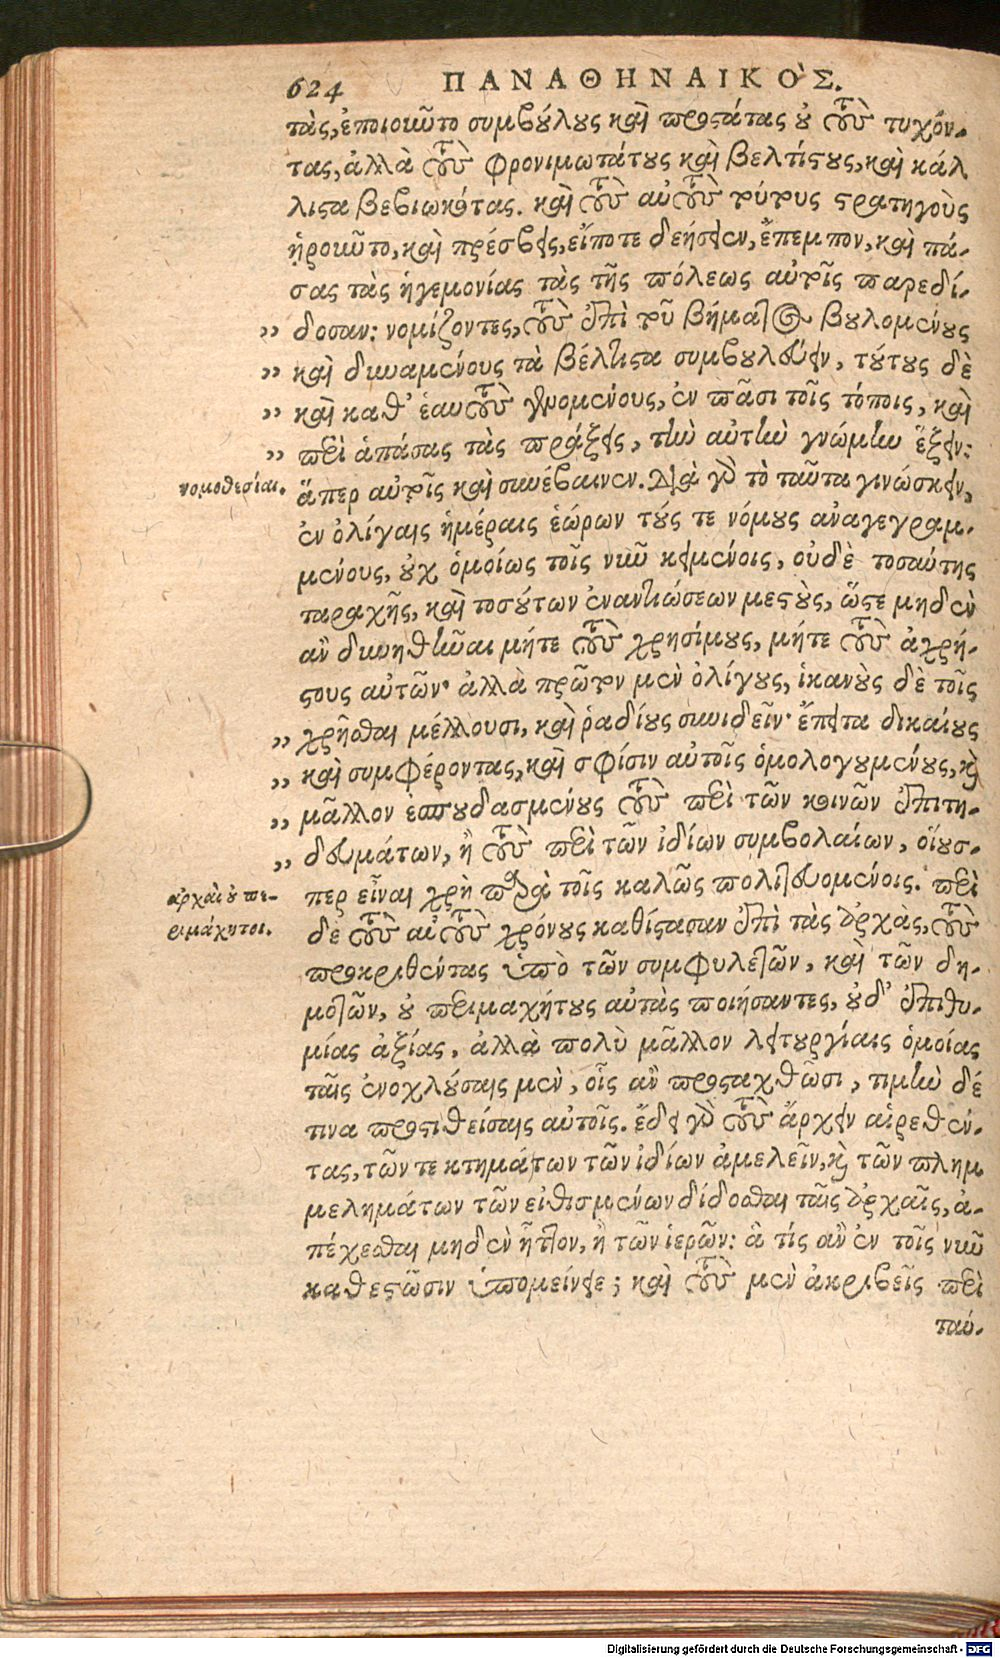 624 ΠΑΝΑΘΗΝΑΙΚΟ`Σ.
τὰς, ἐποιοιῶτο συμβούλους καὶ προστάτας οὐ τοὺς τυχόν-
τας, ἀλλὰ τοὺς φρονιμωτάτους καὶ βελτίστους, καὶ κάλ
λιστα βεβιωκότας. καὶ τοὺς αὐτοὺς τούτους στρατηγοὺς
ᾑροιῶτο, καὶ πρέσβεις, εἴποτε δεήσειεν, ἔπεμπον, καὶ πά-
σας τὰς ἡγεμονίας τὰς τῆς πόλεως αὐτοῖς παρεδί-
„ δοσαν: νομίζοντες, τοὺς ἐπὶ τοῦ βήματος βουλομένους
„ καὶ δυναμένους τὰ βέλτιστα συμβουλεύειν, τούτους δὲ
„ καὶ καθ' ἑαυτοὺς γενομένους, ἐν πᾶσι τοῖς τόποις, καὶ
„ περὶ ἁπάσας τὰς πράξεις, τὴν αὐτὴν γνώμην ἕξειν:
νομοθεσίαι. ἅπερ αὐτοῖς καὶ συνέβαινεν. Διὰ γὰρ τὸ ταῦτα γινώσκειν,
ἐν ὀλίγαις ἡμέραις ἑώρων τούς τε νόμους ἀναγεγραμ-
μένους, οὐχ ὁμοίως τοῖς νῦν κειμένοις, οὐδὲ τοσαύτης
ταραχῆς, καὶ τοσούτων ἐναντιώσεων μεστοὺς, ὥστε μηδὲν
ἂν δυνηθῆναι μήτε τοὺς χρησίμους, μήτε τοὺς ἀχρή-
στους αὐτῶν· ἀλλὰ πρῶτον μὲν ὀλίγους, ἱκανοὺς δὲ τοῖς
„ χρῆσθαι μέλλουσι, καὶ ῥᾳδίους συνιδεῖν· ἔπειτα δικαίους
„ καὶ συμφέροντας, καὶ σφίσιν αὐτοῖς ὁμολογουμένους, καὶ
„ μᾶλλον ἐσπουδασμένους τοὺς περὶ τῶν κοινῶν ἐπιτη-
„ δευμάτων, ἢ τοὺς περὶ τῶν ἰδίων συμβολαίων, οἵους-
ἀρχαὶ οὐ πε- περ εἶναι χρὴ παρὰ τοῖς καλῶς πολιτευομένοις. περὶ
ριμάχητοι. δὲ τοὺς αὐτοὺς χρόνους καθίστασαν ἐπὶ τὰς ἀρχὰς, τοὺς
προκριθέντας ὑπὸ τῶν συμφυλετῶν, καὶ τῶν δη-
μοτῶν, οὐ περιμαχήτους αὐτὰς ποιήσαντες, οὐδ' ἐπιθυ-
μίας ἀξίας, ἀλλὰ πολὺ μᾶλλον λειτουργίαις ὁμοίας
ταῖς ἐνοχλούσαις μὲν, οἷς ἂν προσταχθῶσι, τιμὴν δέ
τινα προστιθείσαις αὐτοῖς. ἔδει γὰρ τοὺς ἄρχειν αἱρεθέν-
τας, τῶν τε κτημάτων τῶν ἰδίων ἀμελεῖν, καὶ τῶν πλημ
μελημάτων τῶν εἰθισμένων δίδοσθαι ταῖς ἀρχαῖς, ἀ-
πέχεσθαι μηδὲν ἧττον, ἢ τῶν ἱερῶν: ἃ τίς ἂν ἐν τοῖς νῦν
καθεστῶσιν ὑπομείνειε; καὶ τοὺς μὲν ἀκριβεῖς περὶ
ταύ-
Digitalisierung gefördert durch die Deutsche Forschungsgemeinschaft - DFG